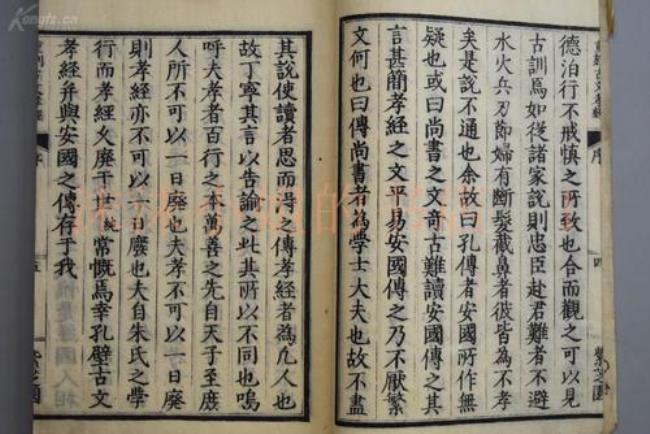 德泊行不戒慎之所致也合而觀之可以見
古訓焉如從諸家説則忠臣赴君難者不避
水火兵刃節婦有斷髮截鼻者彼皆為不孝
矣是説不通也余故曰孔傳者安國所作無
疑也或曰尚書之文奇古難讀安國傳之其
言甚簡孝經之文平易安國傳之乃不厭繁
文何也曰傳尚書者為學士大夫也故不盡
其説使讀者思而得之傳孝經者為凡人也
故丁寧其言以告諭之此其所以不同也嗚
呼夫孝者百行之本萬善之先自天子至庶
人所不可以一日廢也夫孝不可以一日廢
則孝經亦不可以一日廢也夫自朱氏之學
行而孝經又廢于世純常慨焉幸孔壁古文
孝經并與安國之傳存于我
序
四
紫芝園
序
五
紫芝園
Kongfz.cn